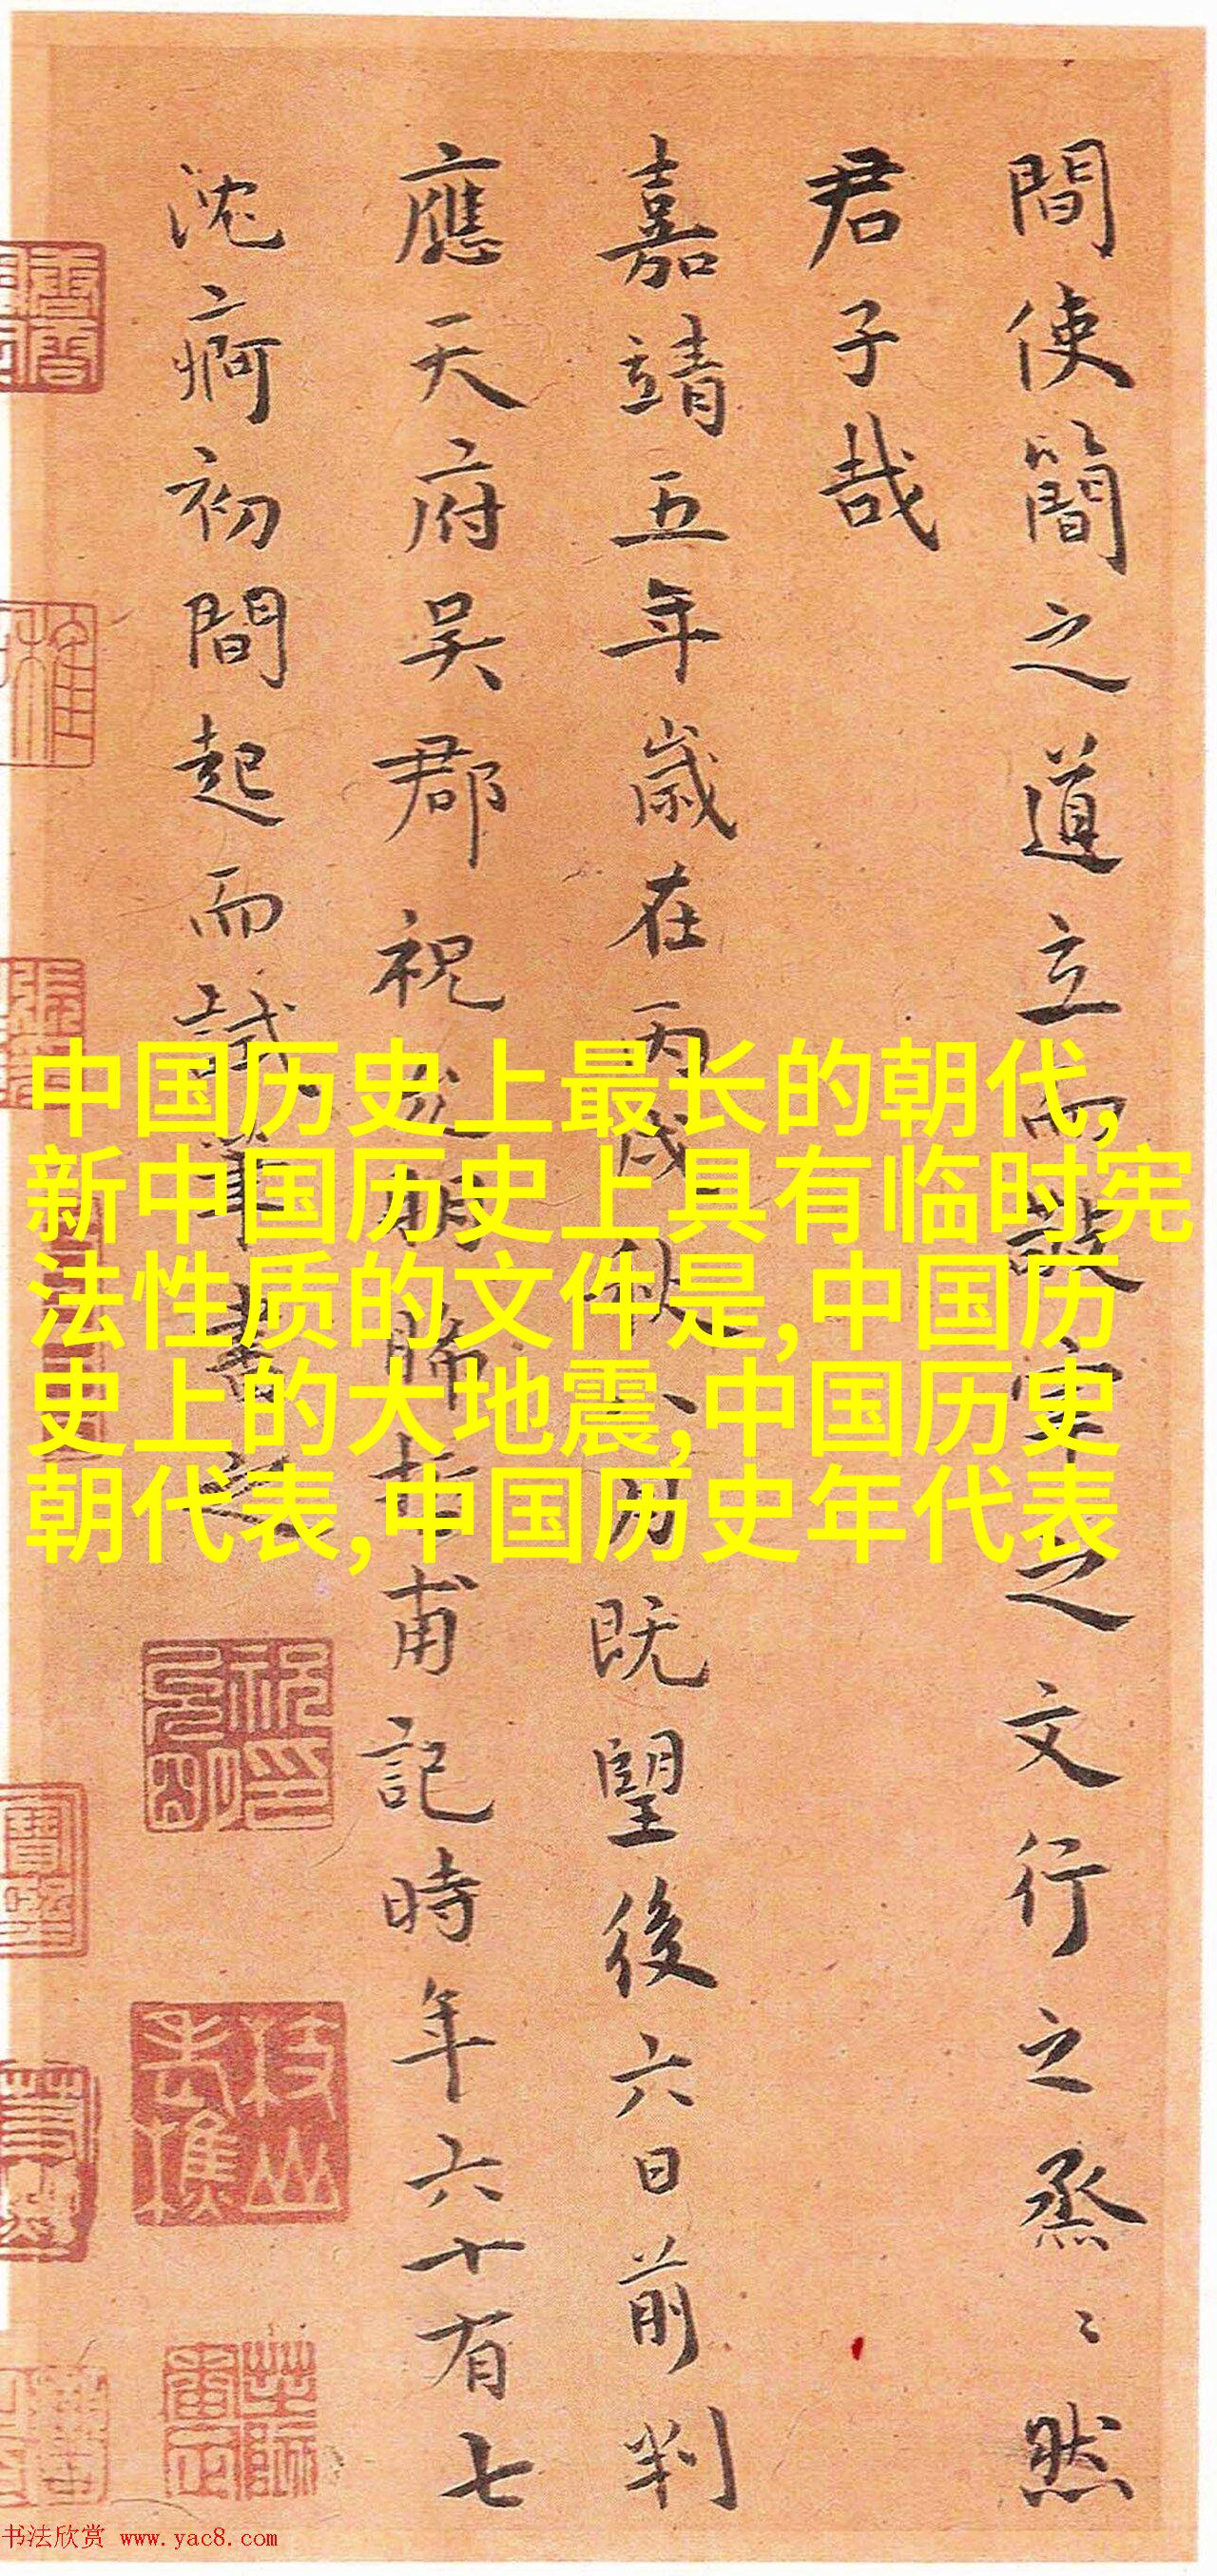 間使簡之道立而散寧之文行之烝〻然
君子哉
嘉靖五年歲在丙戌秋八月既朢後六日前判
應天府吴郡祝允明晞哲甫記時年六十有七
沈痾初間起而試筆書之
中国历史上最长的朝代,
新中国历史上具有临时宪
法性质的文件是,中国历
史上的大地震,中国历史
朝代表,中国历史年代表
祝允明印
枝山老樵
书法欣赏 www.yac8.com